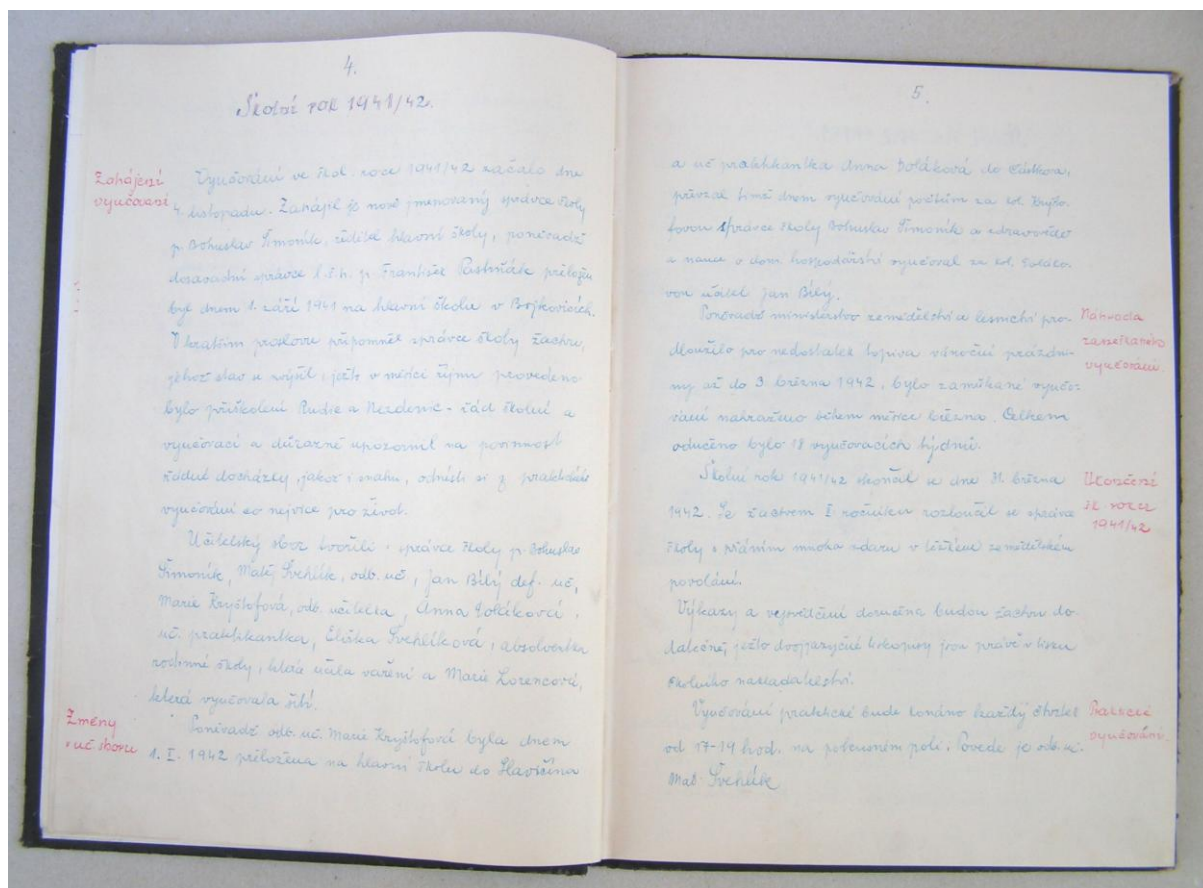 4.
Školní rok 1941/42.
Zahájení
vyučování
Vyučování ve škol. roce 1941/42 začalo dne
4. listopadu. Zahájil je nově jmenovaný správce školy
p. Bohuslav Šimoník, ředitel hlavní školy, poněvadž
dosavadní správce l.š.h. p. František Pastrňák přeložen
byl dnem 1. září 1941 na hlavní školu v Bojkovicích.
V kratším proslovu připomněl správce školy žactvu,
jehož stav se zvýšil, ježto v měsíci říjnu provedeno
bylo přiškolení Rudic a Nezdenic - řád školní a
vyučovací a důrazně upozornil na povinnost
řádné docházky, jakož i snahu, odnésti si z praktického
vyučování co nejvíce pro život.
Učitelský sbor tvořili: správce školy p. Bohuslav
Šimoník, Matěj Švehlík, odb. uč., Jan Bílý def. uč.,
Marie Kryštofová, odb. učitelka, Anna
uč. praktikantka, Eliška Švehlíková, absolventka
rodinné školy, která učila vaření a Marie Lorencová,
která vyučovala šití.
Změny
v uč. sboru
Poněvadž odb. uč. Marie Kryštofová byla dnem
1. I. 1942 přeložena na hlavní školu do Slavičína
5.
a uč. praktikantka Anna do
převzal týmž dnem vyučování počtům za kol. Kryšto-
fovou správce školy Bohuslav Šimoník a zdravovědo
a nauce o dom. hospodářství vyučoval za kol.
vou učitel Jan Bílý.
Poněvadž ministerstvo zemědělství a lesnictví pro-
dloužilo pro nedostatek topiva vánoční prázdni-
ny až do 3. března 1942, bylo zameškané vyučo-
vání nahraženo během měsíce března. Celkem
odučeno bylo 18 vyučovacích týdnů.
Náhrada
zameškaného
vyučování.
Školní rok 1941/42 skončil se dne 31. března
1942. Se žactvem I. ročníku rozloučil se správce
školy s přáním mnoha zdaru v těžkém zemědělském
povolání.
Ukončení
šk. roku
1941/42
Výkazy a vysvědčení doručena budou žactvu do-
datečně, ježto dvojjazyčné tiskopisy jsou právě v tisku
školního nakladatelství.
Vyučování praktické bude konáno každý čtvrtek
od 17-19 hod. na pokusném poli. Povede je odb. uč.
Mat. Švehlík
Praktické
vyučování.